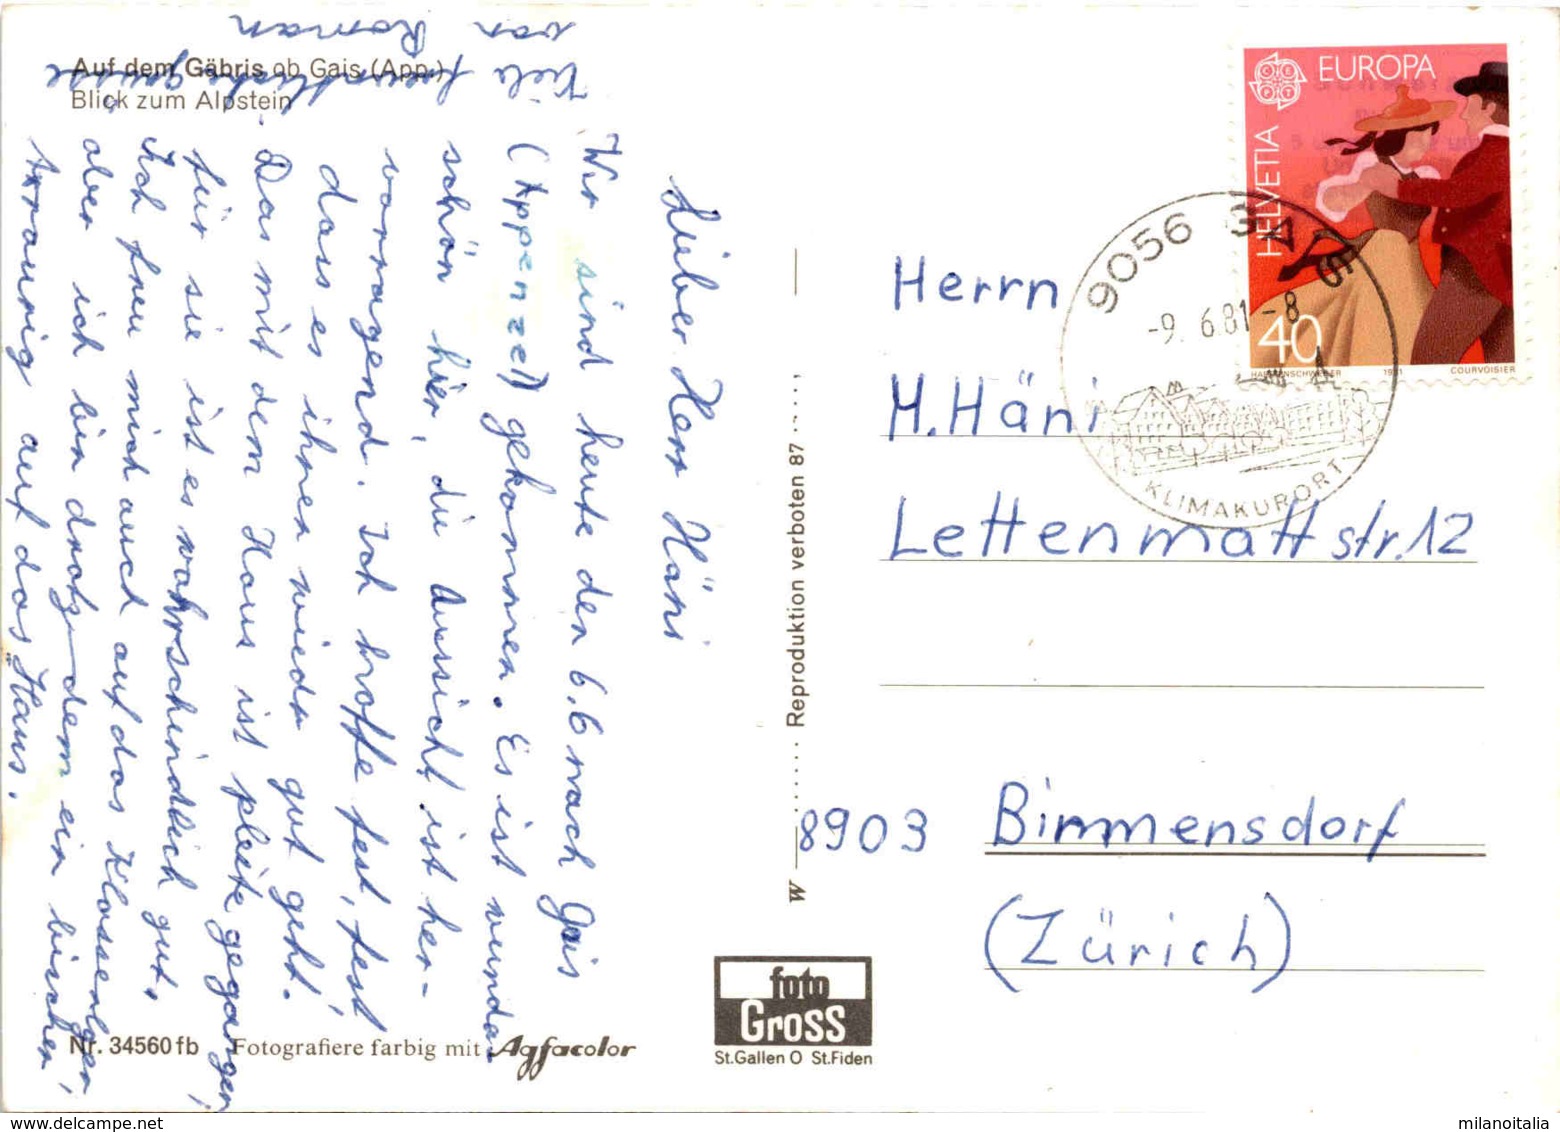 Auf dem Gäbris ob Gais (App.)
Blick zum Alpstein
Lieber Herr Häni
Wir sind heute den 6.6 nach Gais
(Appenzel) gekommen. Es ist wunder
schön hier, die Aussicht ist her-
vorragend. Ich hoffe fest, fest
dass es ihnen wieder gut geht.
Das mit dem Haus ist pleite gegangen,
für sie ist es wahrscheindlich gut.
Ich freu mich auch auf das Klassenlager,
aber ich bin drotz-dem ein bischen
traurig auf das Haus.
Viele freundliche grüsse
von
Roman
Nr. 34560 fb Fotografiere farbig mit Agfacolor
W Reproduktion verboten 87
foto
Gross
St.Gallen O St.Fiden
EUROPA
CEPT
HELVETIA
40
HAFFENSCHWEILER 1981 COURVOISIER
9056 GAIS
-9.6.81-8
KLIMAKURORT
Herrn
H. Häni
Lettenmattstr. 12
8903 Birmensdorf
(Zürich)
milanoitalia